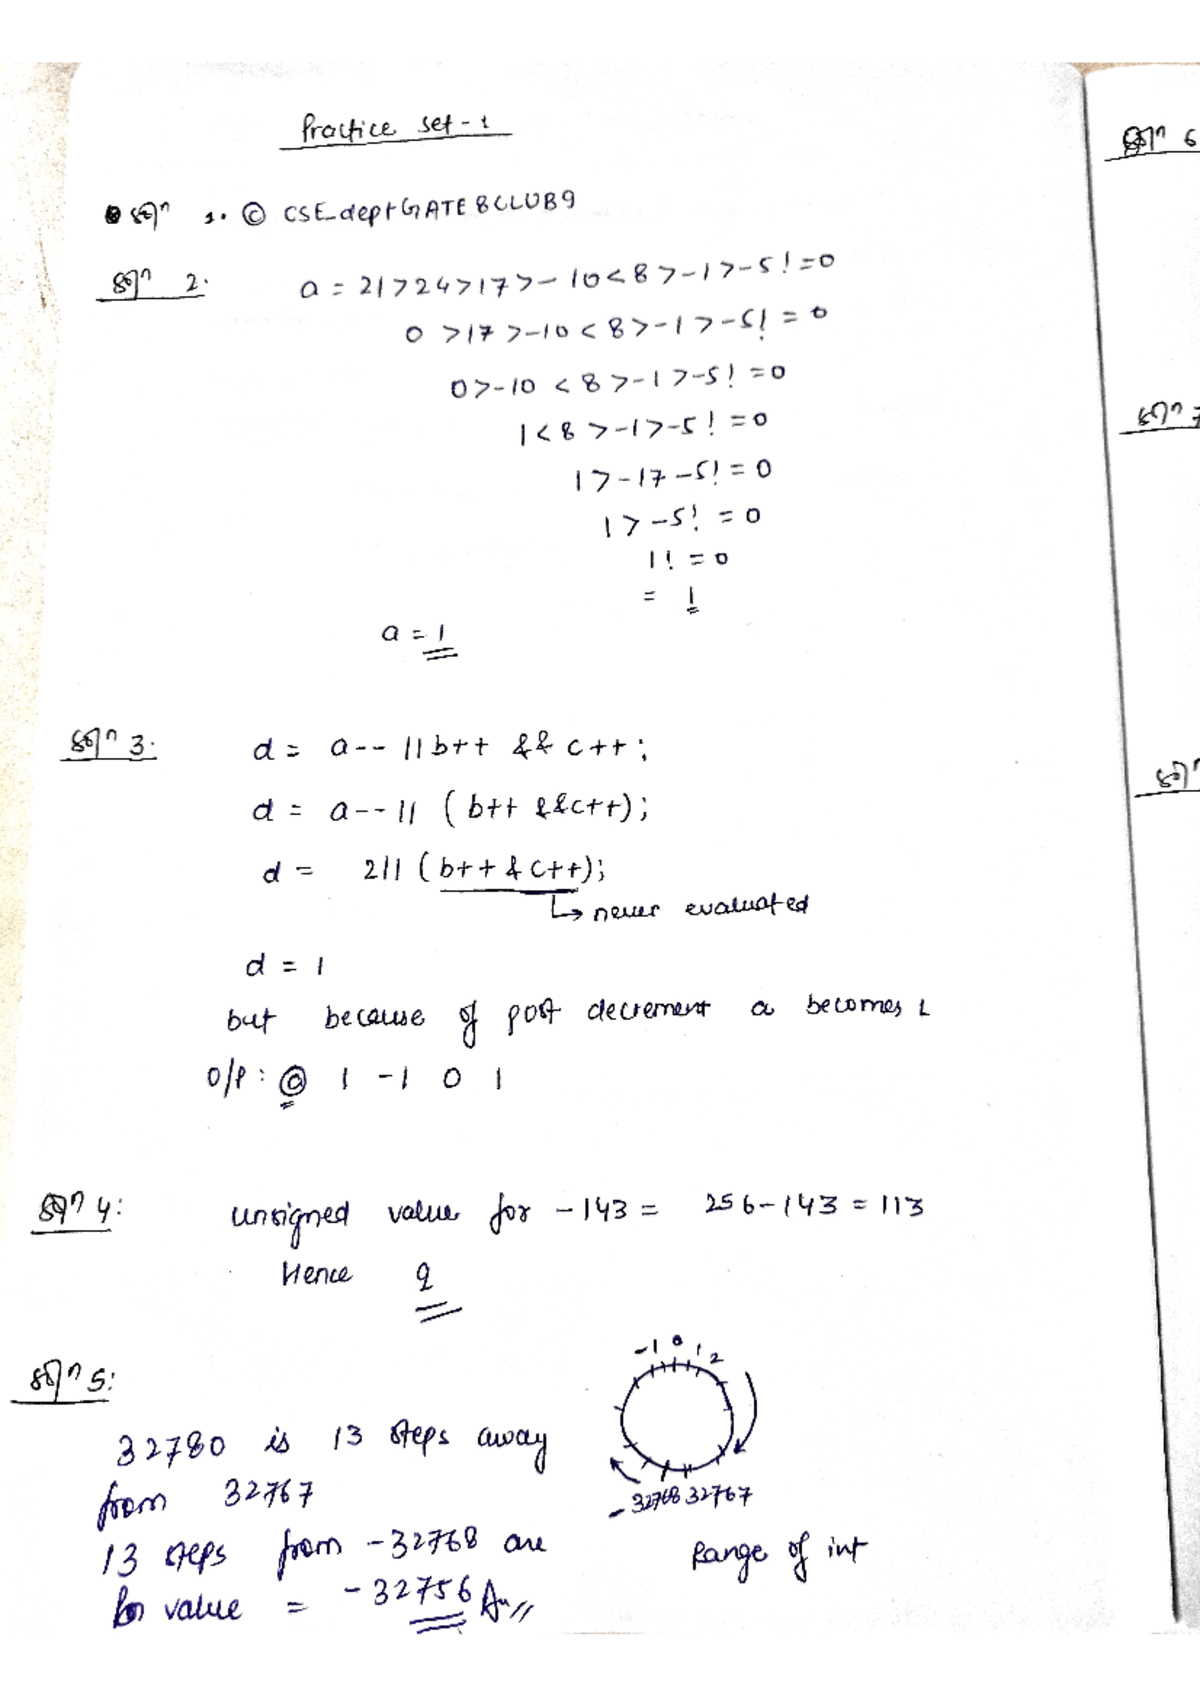 Practice set - 1
Sol^n 1. © CSE_deptGATE8CLUB9
Sol^n 2. a = 21>24>17>-10<8>-1>-5!=0
0 >17 >-10 < 8>-1>-5! = 0
0>-10 < 8 >-1 >-5! =0
1<8 >-1>-5! =0
1>-1>-5! = 0
1>-5! = 0
1! = 0
= 1
a = 1
Sol^n 3. d = a-- || b++ && c++;
d = a-- || (b++ &&c++);
d = 2|| (b++ & c++);
↳ never evaluated
d = 1
but because of post decrement a becomes 1
O/P : ⓐ 1 -1 0 1
Sol^n 4: unsigned value for -143 = 256-143 = 113
Hence q
Sol^n 5:
32780 is 13 steps away
from 32767
13 steps from -32768 are
value = -32756 Ans
-1 0 1 2
-32768 32767
Range of int
Sol^n 6
Sol^n 7
Sol^n